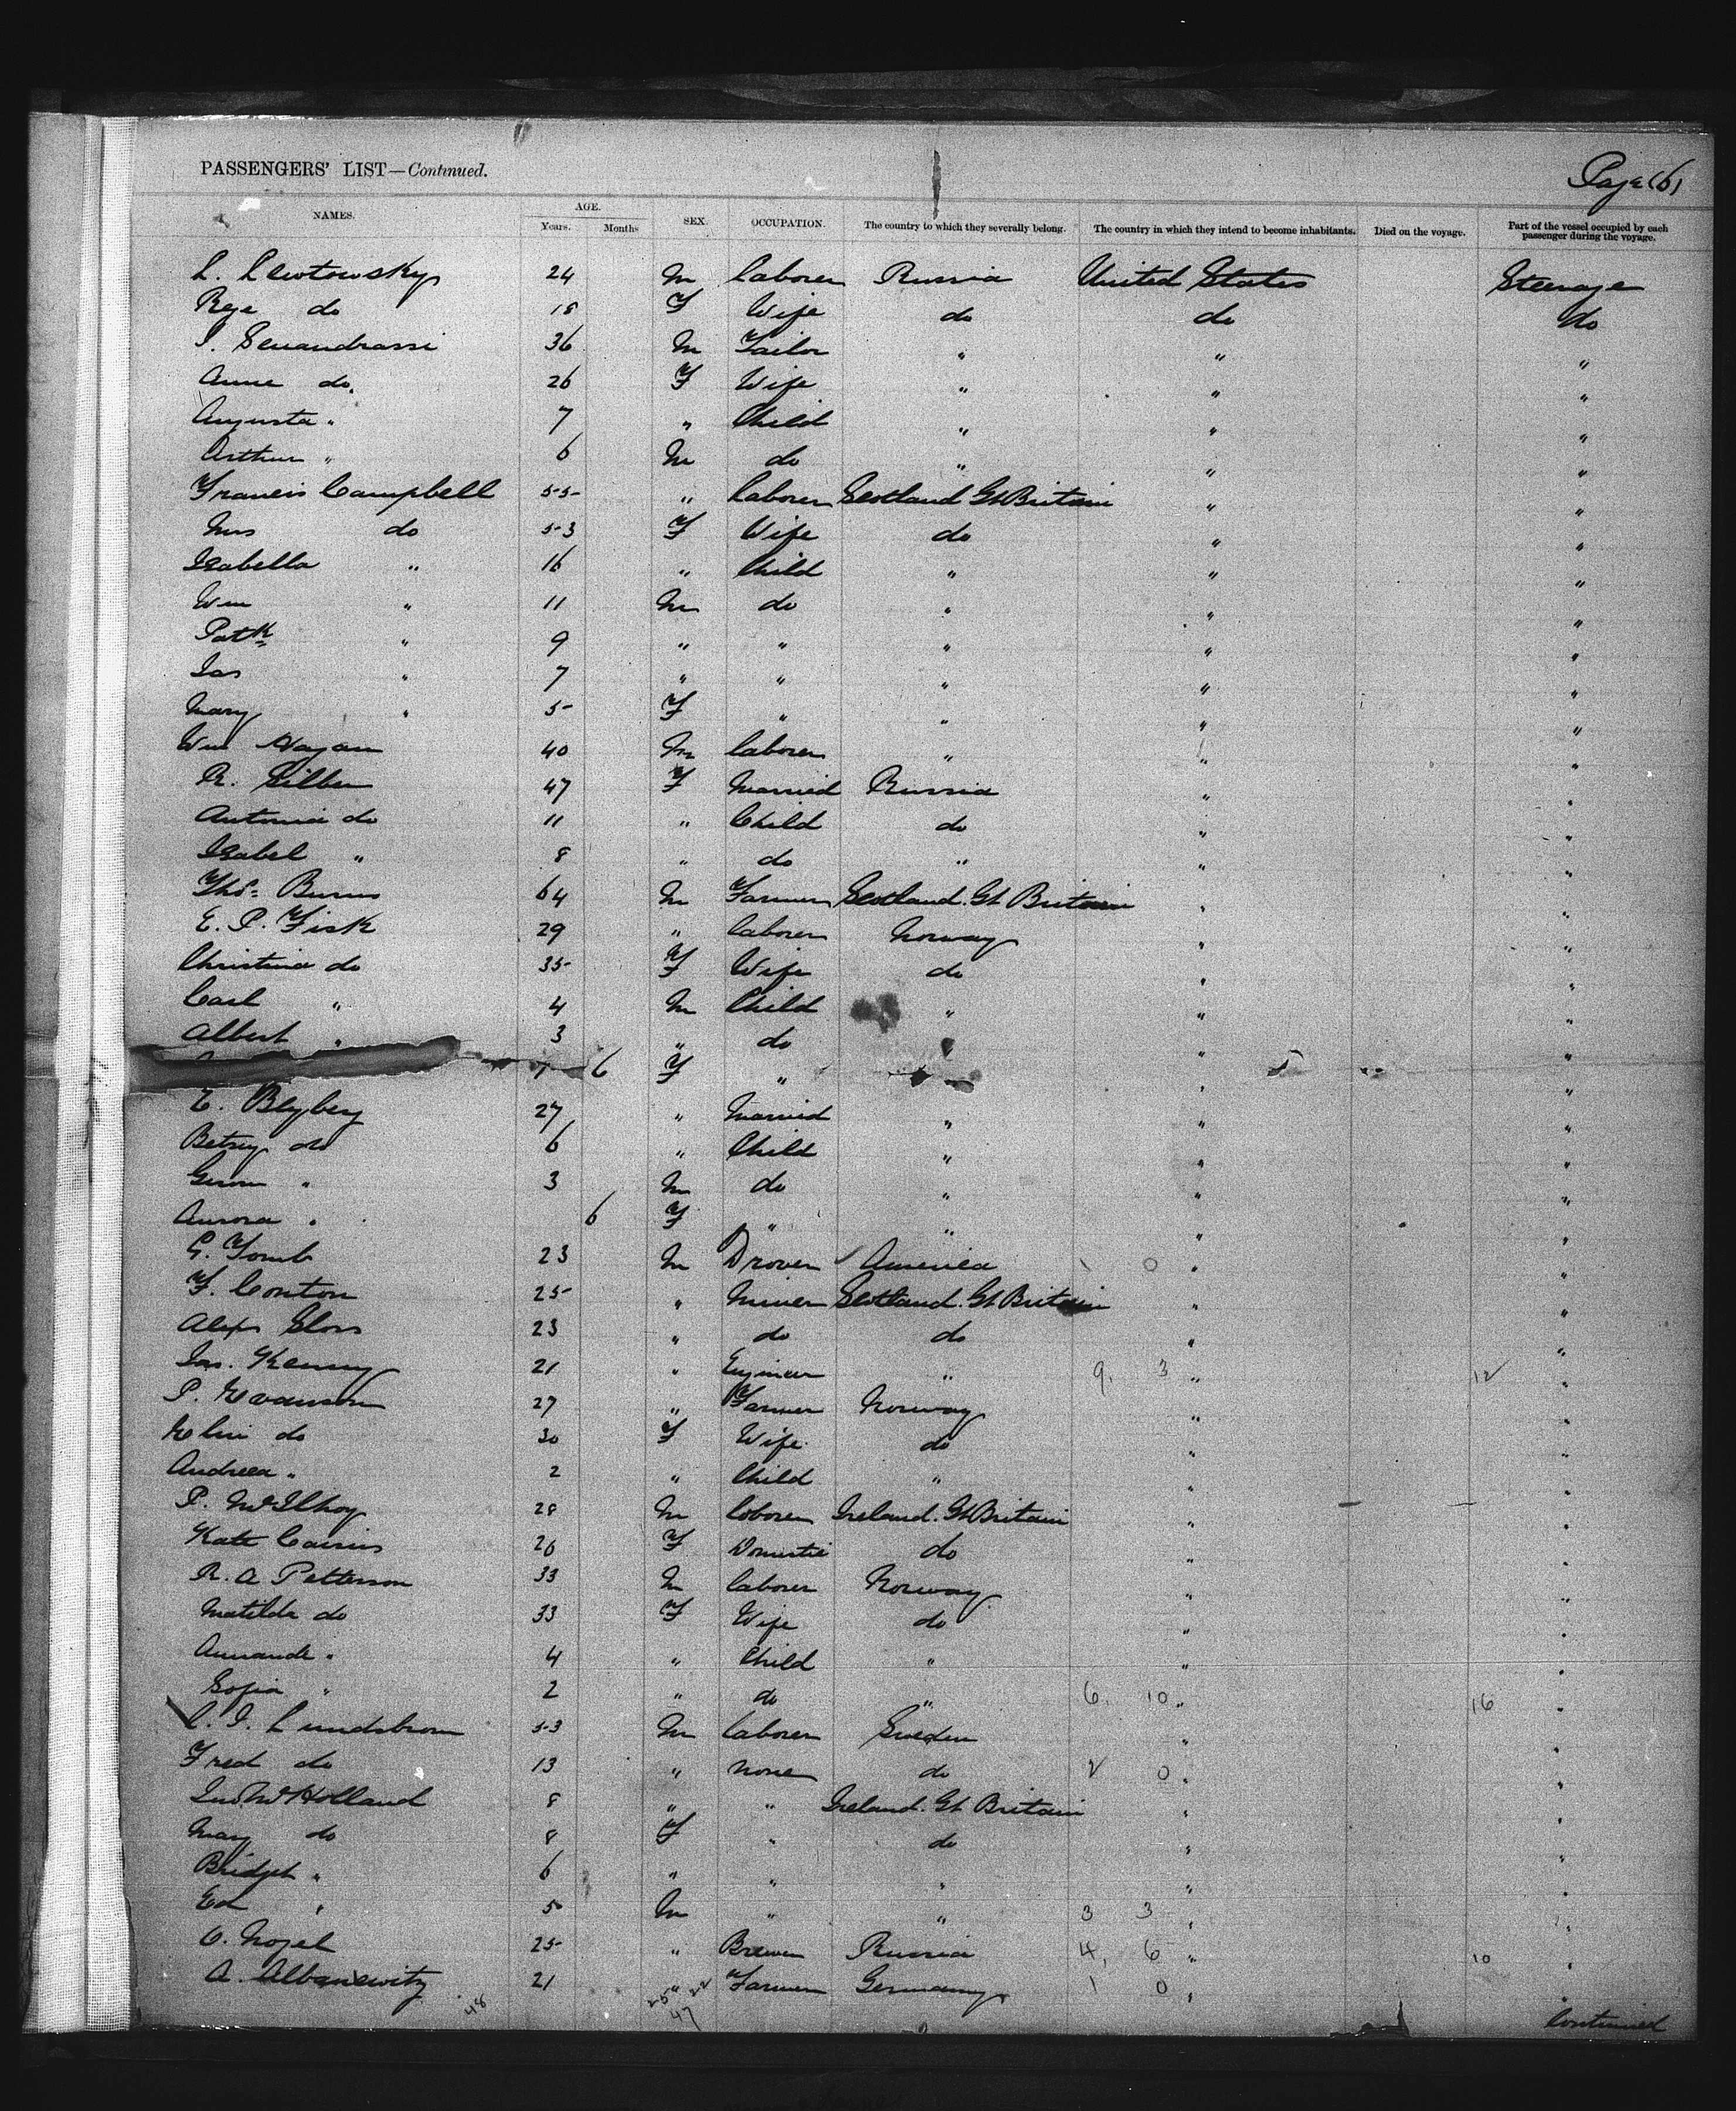 PASSENGERS' LIST—Continued. Page (6)
NAMES. AGE. Years. Months SEX. OCCUPATION. The country to which they severally belong. The country in which they intend to become inhabitants. Died on the voyage. Part of the vessel occupied by each passenger during the voyage.
L. Lewtowsky 24 M Laborer Russia United States Steerage
do 18 F Wife do do do
36 M Tailor " " "
Anne do. 26 F Wife " " "
Augusta " 7 " Child " " "
Arthur " 6 M do " " "
Francis Campbell 55 " Laborer Scotland Gt Britain " "
Mrs do 53 F Wife do " "
Isabella " 16 " Child " " "
Wm " 11 M do " " "
Patk " 9 " " " " "
Jas " 7 " " " " "
Mary " 5 F " " " "
Wm Hagan 40 M Laborer " " "
R. Silber 47 F Married Russia " "
Antonia do 11 " Child do " "
Isabel " 8 " do " " "
Thos. Burns 64 M Farmer Scotland. Gt Britain " "
E. P. Fisk 29 " Laborer Norway " "
Christina do 35 F Wife do " "
Carl " 4 M Child " " "
Albert " 3 " do " " "
6 F " " "
E. Blyberg 27 " Married " " "
Betsey do 6 " Child " " "
" 3 M do " " "
Aurora " 6 F " " " "
G. Tomb 23 M Drover America 0 " "
F. Conton 25 " Miner Scotland. Gt Britain " "
Alex Glass 23 " do do " "
Jas. Kenny 21 " Engineer " 9. 3 " 12 "
P. Evanson 27 " Farmer Norway " "
Elin do 30 F Wife do " "
Andrea " 2 " Child " " "
P. McIlhoy 28 M Laborer Ireland. Gt Britain " "
Kate Cairns 26 F Domestic do " "
R. A Petterson 33 M Laborer Norway " "
Matilda do 33 F Wife do " "
Amande " 4 " Child " " "
Sofia " 2 " do " 6. 10 " 16 "
C. J. Lundstrom 53 M Laborer Sweden " "
Fred do 13 " None do 2 0 " "
Jno McHolland 8 " " Ireland. Gt Britain " "
Mary do 8 F " do " "
Bridget " 6 " " " " "
Ed " 5 M " " 3 3 " "
O. Nozel 25 " Brewer Russia 4. 6 " 10 "
A. Albanewitz 21 " Farmer Germany 1 0 " "
48 25 22 Continued
47